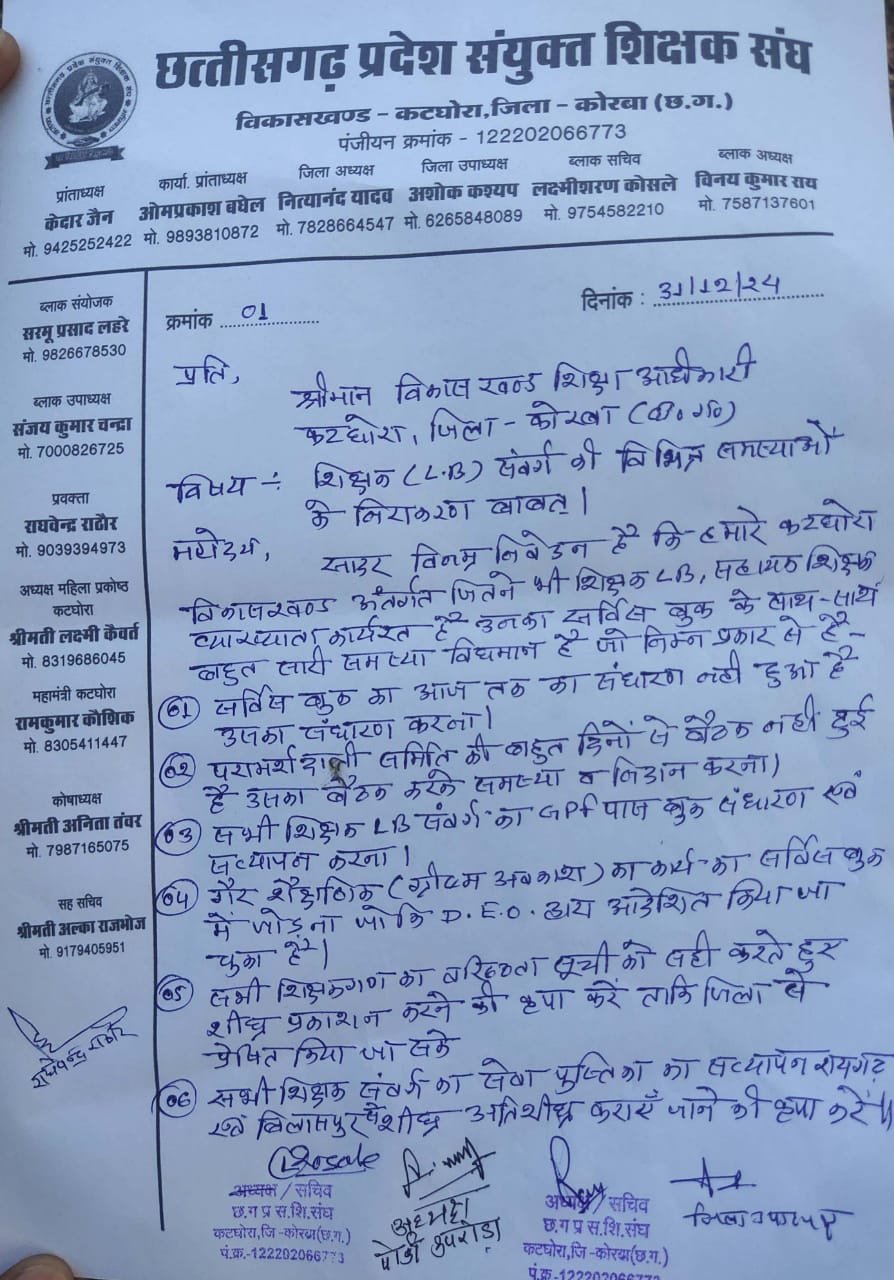 छत्तीसगढ़ प्रदेश संयुक्त शिक्षक संघ
विकासखण्ड - कटघोरा,जिला - कोरबा (छ.ग.)
पंजीयन क्रमांक - 122202066773
प्रांताध्यक्ष
केदार जैन
मो. 9425252422
कार्या. प्रांताध्यक्ष
ओमप्रकाश बघेल
मो. 9893810872
जिला अध्यक्ष
नित्यानंद यादव
मो. 7828664547
जिला उपाध्यक्ष
अशोक कश्यप
मो. 6265848089
ब्लाक सचिव
लक्ष्मीशरण कोसले
मो. 9754582210
ब्लाक अध्यक्ष
विनय कुमार राय
मो. 7587137601
ब्लाक संयोजक
सरमू प्रसाद लहरे
मो. 9826678530
ब्लाक उपाध्यक्ष
संजय कुमार चन्द्रा
मो. 7000826725
प्रवक्ता
राघवेन्द्र राठौर
मो. 9039394973
अध्यक्ष महिला प्रकोष्ठ
कटघोरा
श्रीमती लक्ष्मी कैवर्त
मो. 8319686045
महामंत्री कटघोरा
रामकुमार कौशिक
मो. 8305411447
कोषाध्यक्ष
श्रीमती अनिता तंवर
मो. 7987165075
सह सचिव
श्रीमती अल्का राजभोज
मो. 9179405951
राघवेन्द्र राठौर
क्रमांक 01
दिनांक : 31/12/24
प्रति,
श्रीमान विकास खण्ड शिक्षा अधिकारी
कटघोरा, जिला - कोरबा (छ० ग०)
विषय :- शिक्षक (L.B) संवर्ग की विभिन्न समस्याओं
के निराकरण बाबत्।
महोदय,
सादर विनम्र निवेदन है कि हमारे कटघोरा
विकासखण्ड अंतर्गत जितने भी शिक्षक LB, सहायक शिक्षक
व्याख्याता कार्यरत है उनका सर्विस बुक के साथ-साथ
बहुत सारी समस्या विद्यमान है जो निम्न प्रकार से है-
01 सर्विस बुक का आज तक का संधारण नही हुआ है
उसका संधारण करना।
02 परामर्शदात्री समिति की बहुत दिनों से बैठक नही हुई
है उसका बैठक करके समस्या व निदान करना।
03 सभी शिक्षक LB संवर्ग का GPF पास बुक संधारण एवं
सत्यापन करना।
04 गैर शैक्षणिक (ग्रीष्म अवकाश) का कार्य का सर्विस बुक
में जोड़ना जो कि D.E.O. द्वारा आदेशित किया जा
चुका है।
05 सभी शिक्षकगण का वरिष्ठता सूची को सही करते हुए
शीघ्र प्रकाशन करने की कृपा करें ताकि जिला से
प्रेषित किया जा सके
06 सभी शिक्षक संवर्ग का सेवा पुस्तिका का सत्यापन रायगढ़
एवं बिलासपुर से शीघ्र अतिशीघ्र कराएँ जाने की कृपा करें।।
अध्यक्ष / सचिव
छ.ग प्र स.शि.संघ
कटघोरा,जि-कोरबा(छ.ग.)
पं.क्र.-122202066773
अध्यक्ष
पोड़ी उपरोड़ा
अध्यक्ष / सचिव
छ.ग प्र स.शि.संघ
कटघोरा,जि-कोरबा(छ.ग.)
पं.क्र-122202066773
जिला उपाध्यक्ष